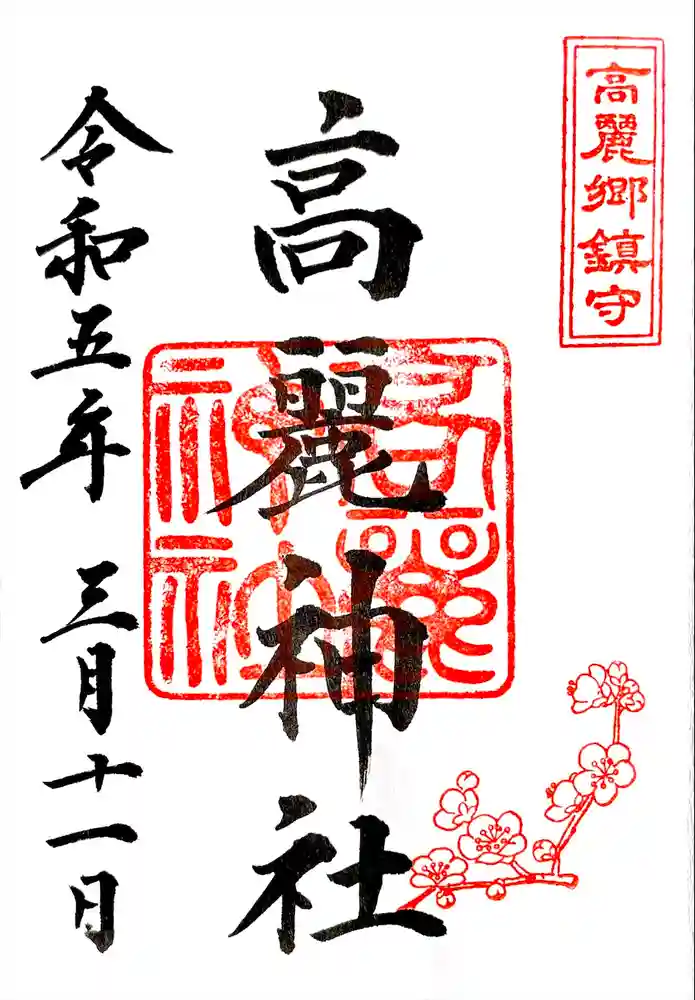 高麗郷鎮守
高麗神社
令和五年 三月十一日